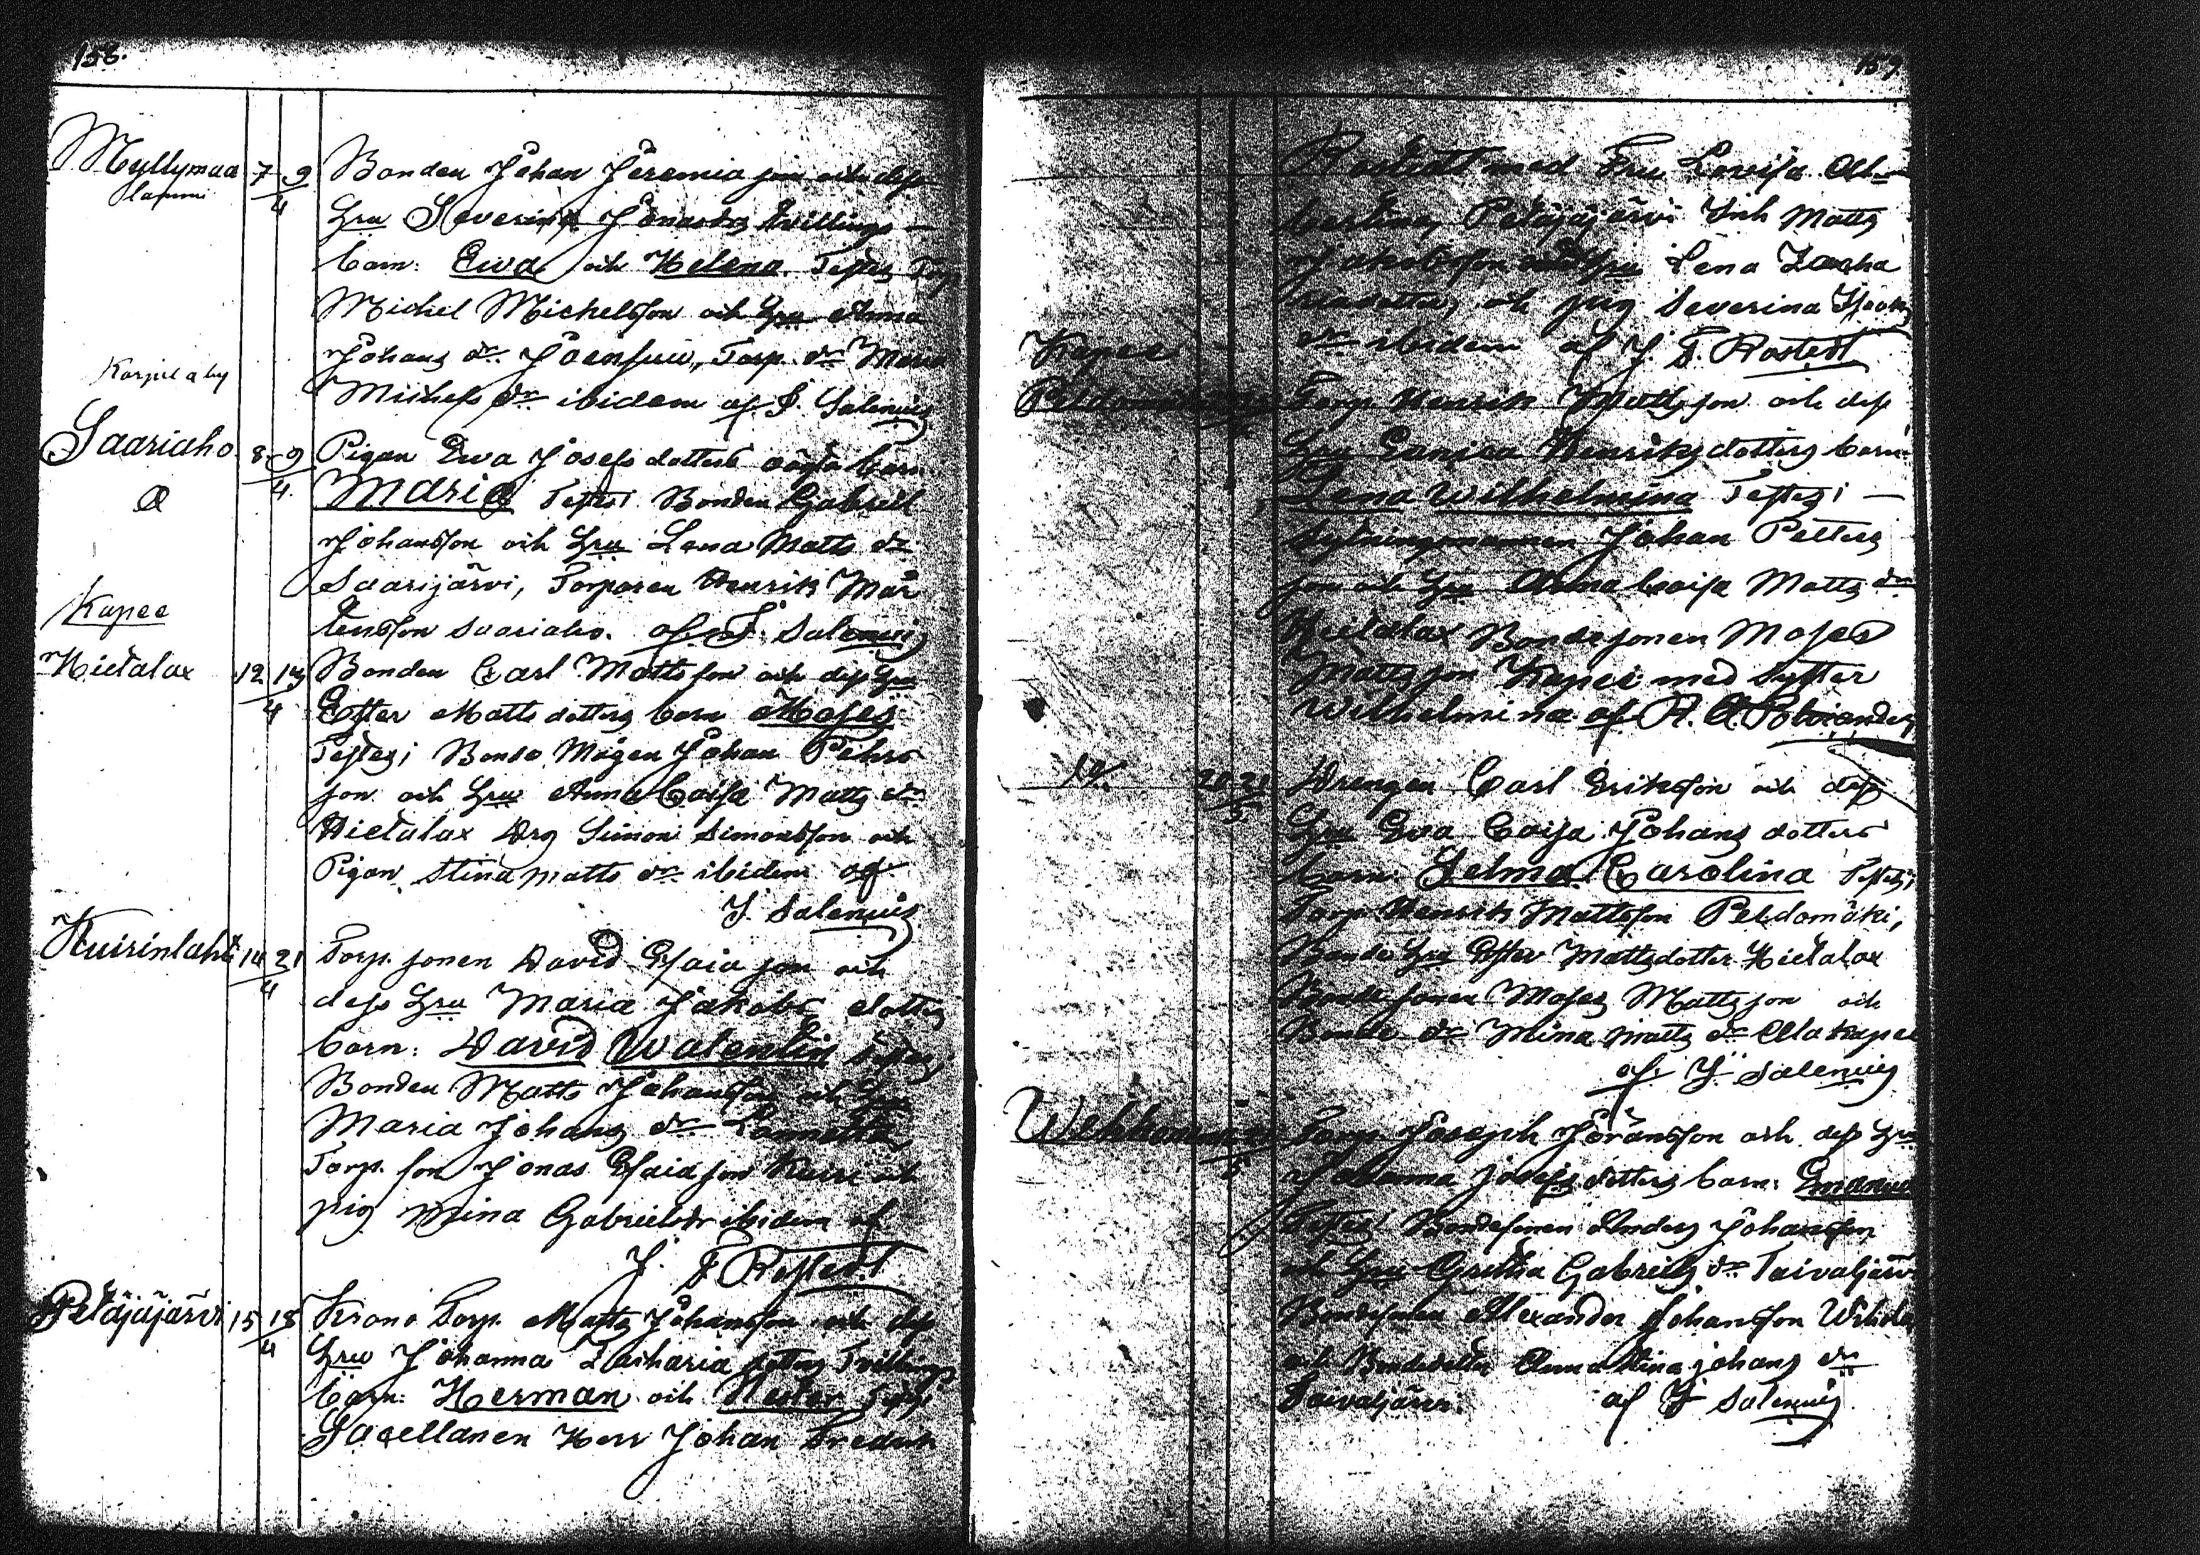 158.
Myllymaa 7 9/4 Bonden Johan Jeremia son och dess
Hru Severina Jonas tvillings
barn: Ewa och Helena Testes Torp
Michel Michelsson och Hru Anna
Johans dr Joensuu, Torp. dr Maria
Michels dr ibidem af J. Salenius
Korpilaby
Saariaho 8 9/4 Pigan Ewa Josefs dotters oägta barn
Maria Testes: Bonden Gabriel
Johansson och Hru Lena Matts dr
Saarijärvi, Torparen Henrik Mår
tensson Saariaho. af J. Salenius
Kapee
Hietalax 12 13/4 Bonden Carl Mattsson och dess Hru
Ester Matts dotters barn Moses
Testes; Bonde Mågen Johan Pehrs
son och Hru Anna Caisa Matts dr
Hietalax Drg Simon Simonsson och
Pigan Stina Matts dr ibidem af
J. Salenius
Kuirinlahti 14 21/4 Torp. sonen David Esaia son och
dess Hru Maria Jakobs dotters
barn: David Walentin Testes
Bonden Matts Johansson och Hru
Maria Johans dr
Torp. son Jonas Esaia son Kuiri och
pig Mina Gabrielsdr ibidem af
J. F Rostedt
Petäjäjärvi 15 18/4 Krono Torp. Matts Johansson och dess
Hru Johanna Zacharia dotters Tvillings
barn: Herman och Nestor Testes
Sacellanen Herr Johan Fredrik
159
Rostedt med Fru Lovisa Al
bertina, Petäjäjärvi Inh Matts
Jakobsson och Hru Lena Zacha
riadotter, och pig Severina Isaks
dr ibidem af J. F. Rostedt
Kapee
Peldomäki Torp Henrik Mattsson och dess
Hru Henriks dotters barn:
Lena Wilhelmina Testes:
Sytningsmannen Johan Petters
son och Hru Anna Caisa Matts dr
Hietalax Bondesonen Moses
Mattsson Kapee med Syster
Wilhelmina af A. Polviander
20 21/5 Drengen Carl Eriksson och dess
Hru Ewa Caisa Johans dotters
barn: Selma Carolina Testes;
Torp Henrik Mattsson Peldomäki,
Bonde Hru Ester Mattsdotter Hietalax
Bonde sonen Moses Mattsson och
Bonde dr Mina Matts dr Alakapee
af J. Salenius
Torp. Joseph Göransson och dess Hru
Johanna Josefs dotters barn: Emanuel
Testes: Bondesonen Anders Johansson
och Hru Gretha Gabriels dr Taivaljärvi
Bondesonen Alexander Johansson
och Bondedotter Anna Stina Johans dr
Taivaljärvi. af J Salenius